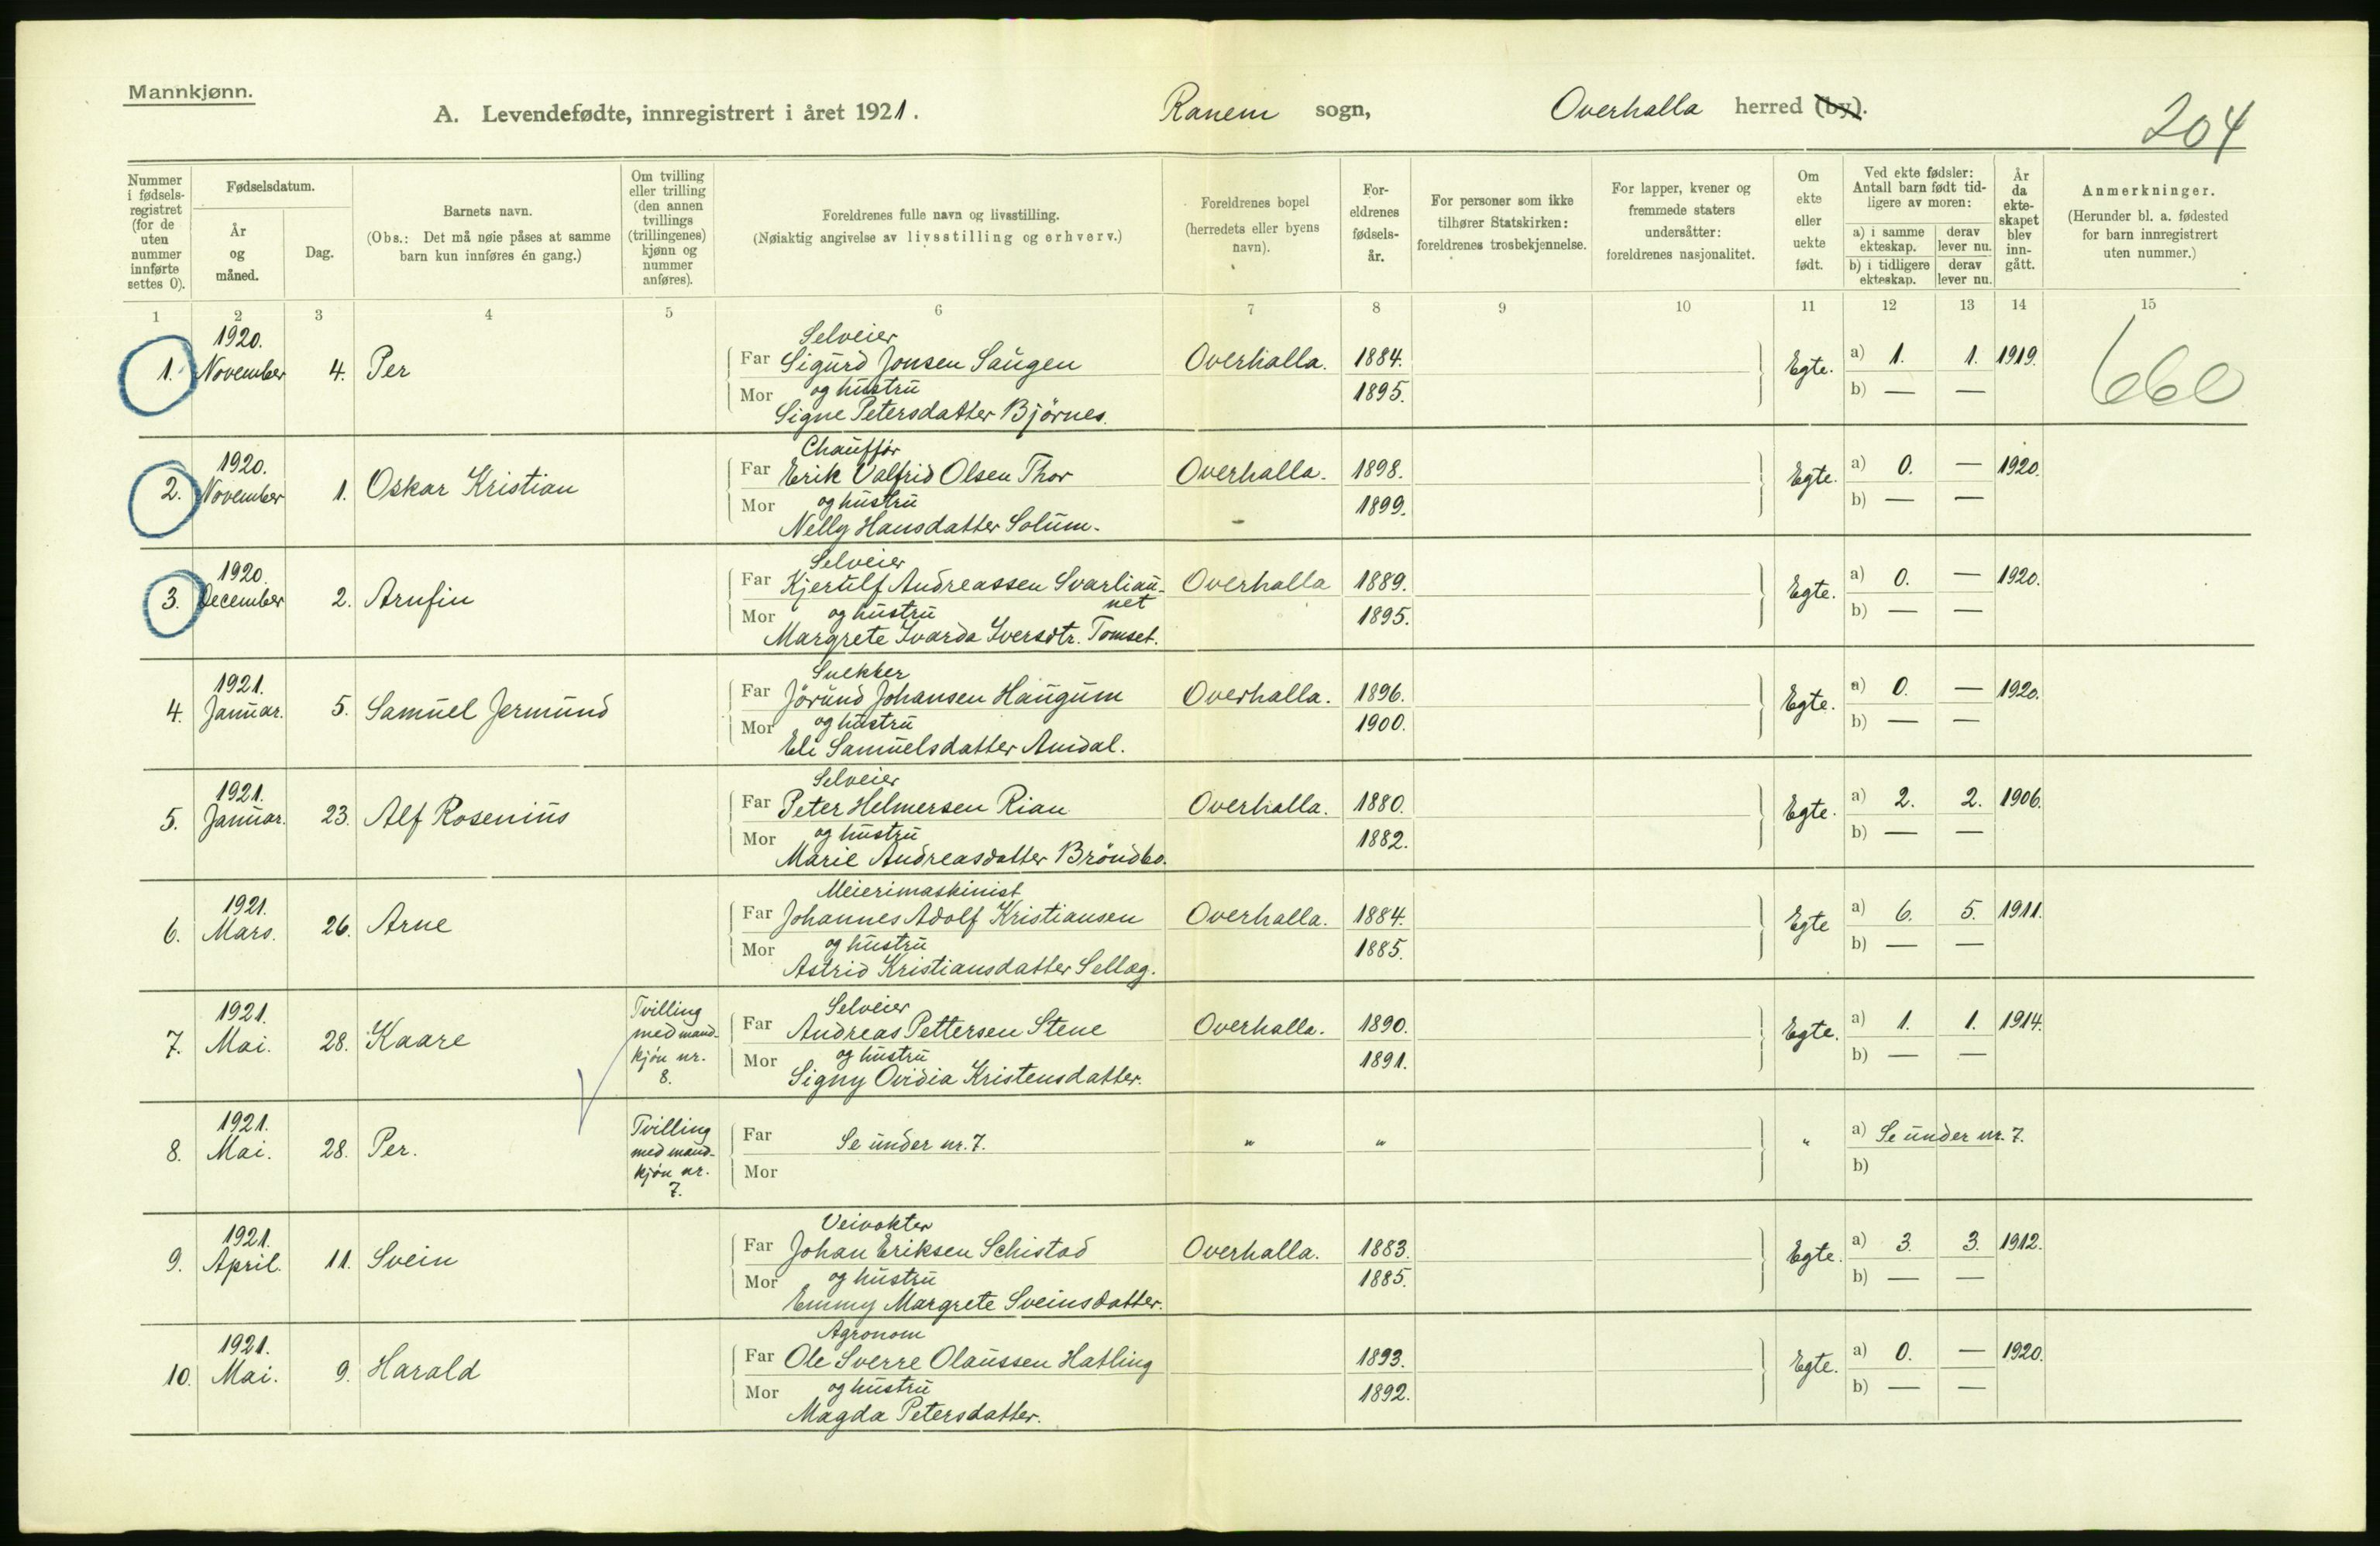 Mannkjønn.
A. Levendefødte, innregistrert i året 1921. Ranem sogn, Overhalla herred (by).
204
Nummer i fødselsregistret (for de uten nummer innførte settes 0).
Fødselsdatum.
År og måned.
Dag.
Barnets navn.
(Obs.: Det må nøie påses at samme barn kun innføres én gang.)
Om tvilling eller trilling (den annen tvillings (trillingenes) kjønn og nummer anføres).
Foreldrenes fulle navn og livsstilling.
(Nøiaktig angivelse av livsstilling og erhverv.)
Foreldrenes bopel
(herredets eller byens navn).
Foreldrenes fødselsår.
For personer som ikke tilhører Statskirken: foreldrenes trosbekjennelse.
For lapper, kvener og fremmede staters undersåtter: foreldrenes nasjonalitet.
Om ekte eller uekte født.
Ved ekte fødsler: Antall barn født tidligere av moren:
a) i samme ekteskap. derav lever nu.
b) i tidligere ekteskap. derav lever nu.
År da ekteskapet blev inngått.
Anmerkninger.
(Herunder bl. a. fødested for barn innregistrert uten nummer.)
1 2 3 4 5 6 7 8 9 10 11 12 13 14 15
1920. Selveier
1. November 4. Per Far Sigurd Jonsen Saugen Overhalla. 1884. Egte. a) 1. 1. 1919. 660
Mor og hustru 1895. b) — —
Signe Petersdatter Björnes.
1920. Chauffør
2. November 1. Oskar Kristian Far Erik Valfrid Olsen Thor Overhalla. 1898. Egte. a) 0. — 1920.
Mor og hustru 1899. b) — —
Nelly Hansdatter Solum.
1920. Selveier
3. December 2. Arnfin Far Kjerulf Andreassen Svarliaunet Overhalla 1889. Egte. a) 0. — 1920.
Mor og hustru 1895. b) — —
Margrete Ivarda Iversdtr. Tomset.
1921. Snekker
4. Januar. 5. Samuel Jermund Far Jörund Johansen Haugum Overhalla. 1896. Egte. a) 0. — 1920.
Mor og hustru 1900. b) — —
Eli Samuelsdatter Amdal.
1921. Selveier
5. Januar. 23. Alf Rosenius Far Peter Helmersen Rian Overhalla. 1880. Egte. a) 2. 2. 1906.
Mor og hustru 1882. b) — —
Marie Andreasdatter Bröndbo.
1921. Meierimaskinist
6. Mars. 26. Arne Far Johannes Adolf Kristiansen Overhalla. 1884. Egte a) 6. 5. 1911.
Mor og hustru 1885. b) — —
Astrid Kristiansdatter Sellæg.
1921. Tvilling med mandkjøn nr. 8. Selveier
7. Mai. 28. Kaare Far Andreas Pettersen Stene Overhalla. 1890. Egte. a) 1. 1. 1914.
Mor og hustru 1891. b) — —
Signy Ovidia Kristensdatter.
1921. Tvilling med mandkjøn nr. 7.
8. Mai. 28. Per. Far Se under nr. 7. " " " a) Se under nr. 7.
Mor b)
1921. Veivokter
9. April. 11. Svein Far Johan Eriksen Schistad Overhalla. 1883. Egte. a) 3. 3. 1912.
Mor og hustru 1885. b) — —
Emmy Margrete Sveinsdatter.
1921. Agronom
10. Mai. 9. Harald Far Ole Sverre Olaussen Hatling 1893. Egte. a) 0. — 1920.
Mor og hustru 1892. b) — —
Magda Petersdatter.